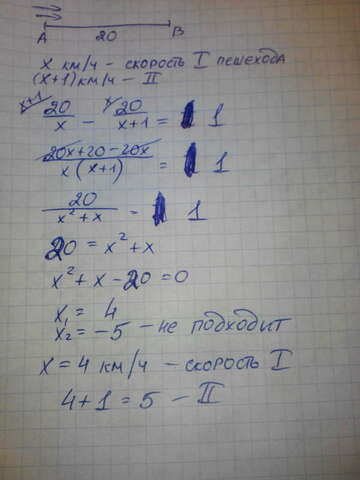 A 20 B
x км/ч - скорость I пешехода
(x+1) км/ч - II
x+1 20/x - x 20/(x+1) = 1
(20x+20-20x)/(x(x+1)) = 1
20/(x²+x) = 1
20 = x²+x
x²+x-20=0
x₁ = 4
x₂ = -5 - не подходит
x = 4 км/ч - скорость I
4+1 = 5 - II